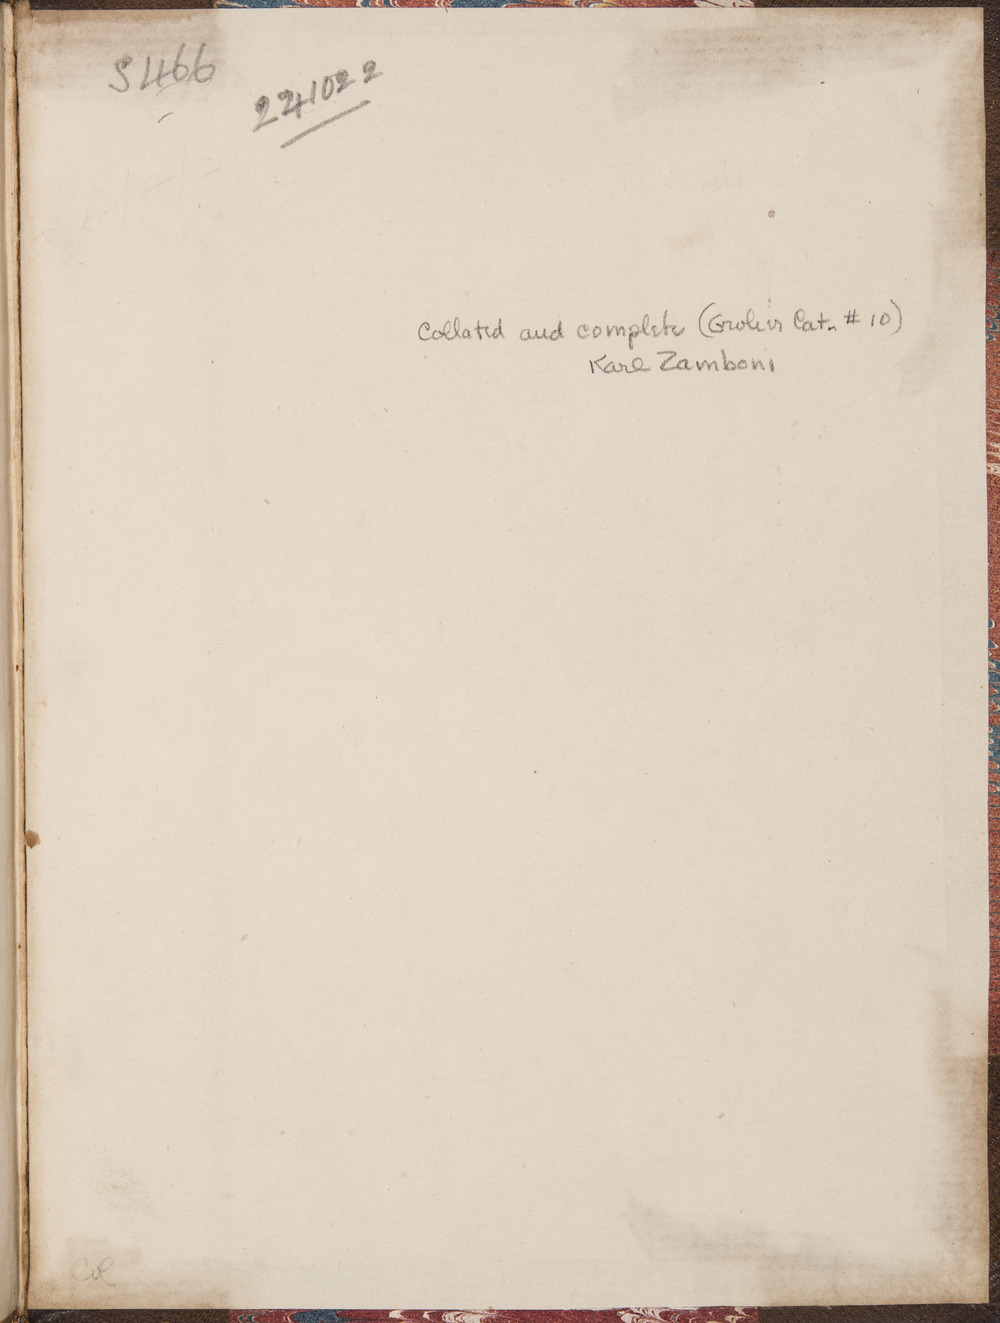 S466
221022
Collated and complete (Grolier Cat. # 10)
Karl Zamboni
Col